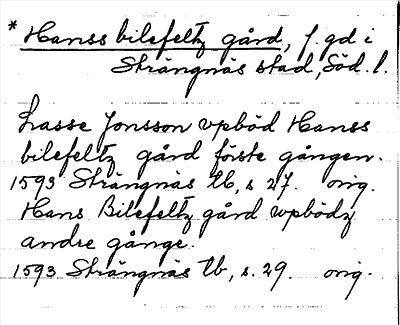 * Hanss bilefeltz gård, f. gd i
Strängnäs stad, Söd. l.
Lasse Jonsson vpböd Hanss
bilefeltz gård förste gången.
1593 Strängnäs tb, s 27. orig.
Hans Bilefeltz gård vpbödz
andre gånge.
1593 Strängnäs tb, s. 29. orig.